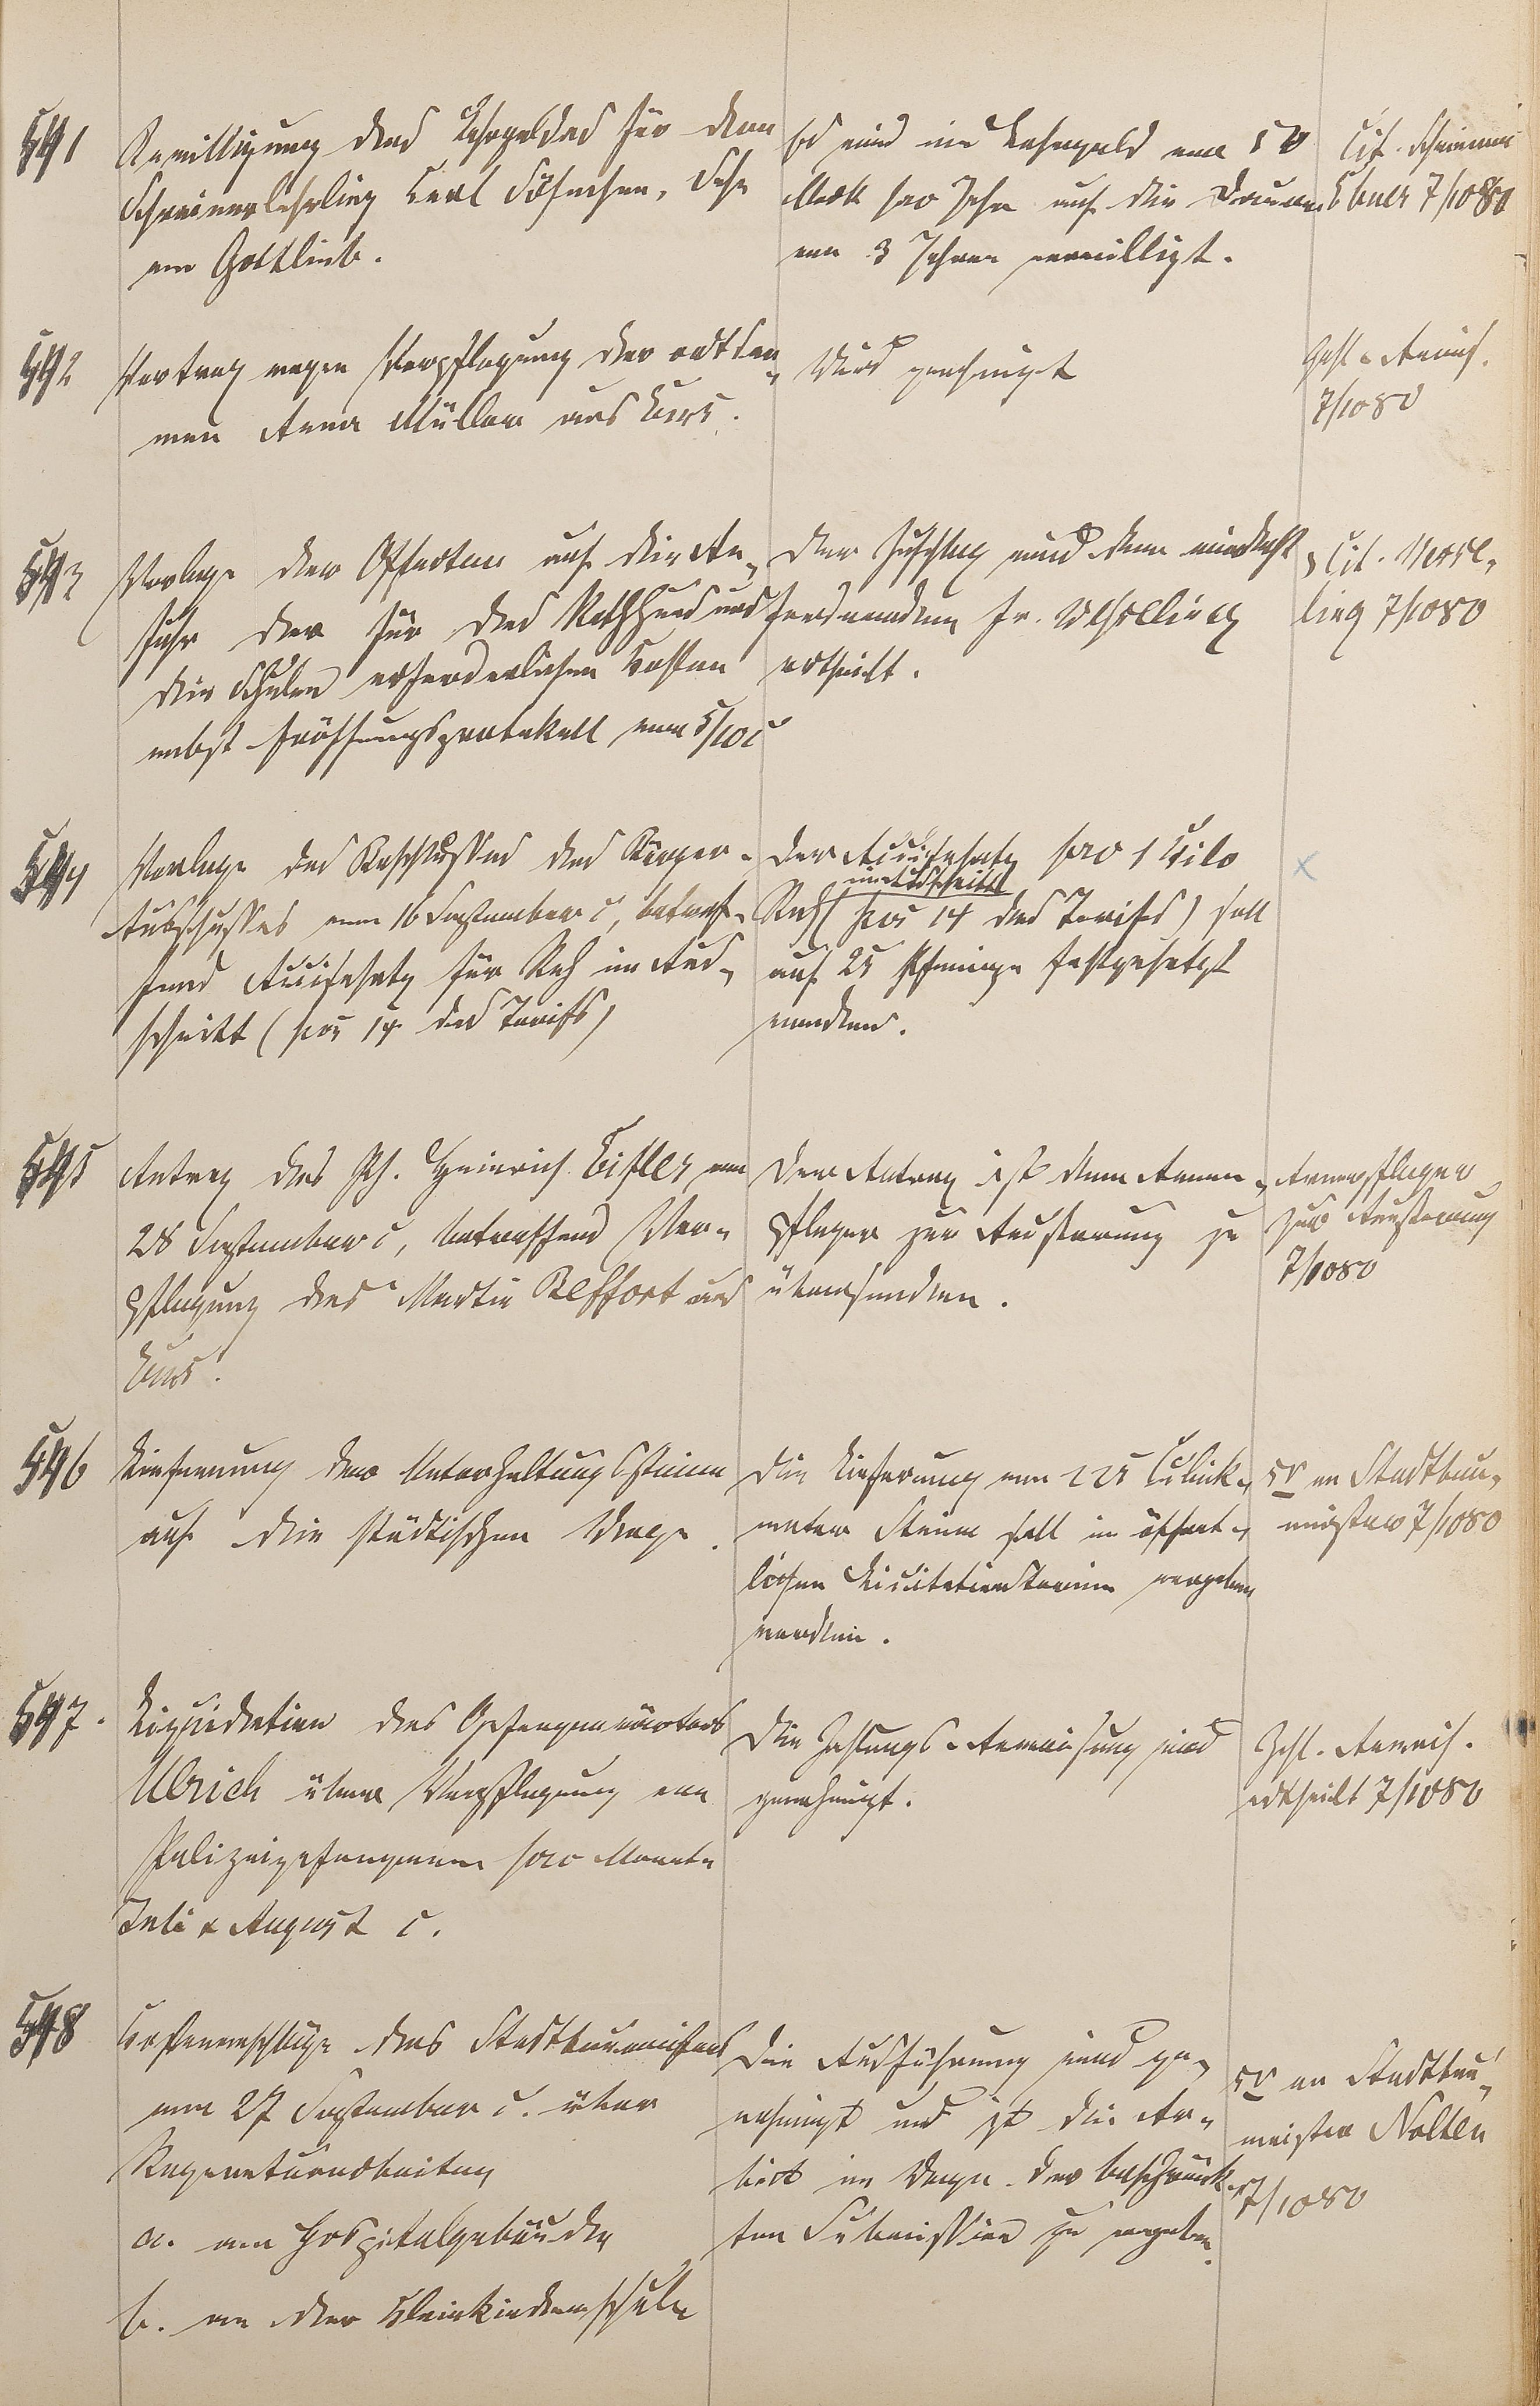 541
Bewilligung des Lehrgeldes für den
Schreinerlehrling Carl Söhnchen, Sohn
von Gottlieb.
Es wird ein Lehrgeld von 50
Mark pro Jahr auf die Dauer
von 3 Jahren verwilligt.
Cit. Schreiner
Ebner 7/10 80
542
Vertrag wegen Verpflegung der ortsar„
men Anna Müller aus Cues.
Wird genehmigt
Zahl. Anweis.
7/10 80
543
Vorlage der Offerten auf die An„
fuhr der für das Rathhaus und
die Schulen erforderlichen Kohlen
nebst Eröffnungsprotokoll vom 5/10 c
Der Zuschlag wird dem mindest„
fordernden Fr. Weßling
ertheilt.
Cit. Wess„
ling 7/10 80
544
Vorlage des Beschlusses des Bürger„
Ausschusses vom 16 September c, betref„
fend Accisesatz für Reh im Aus„
schnitt (pos 14 des Tarifs)
Der Accisesatz pro 1 Kilo
im Ausschnitt
Reh (pos 14 des Tarifs) soll
auf 25 Pfennige festgesetzt
werden.
x
545
Antrag des Ph. Heinrich Eifler vom
28 September c, betreffend Ver„
pflegung des Martin Belffort aus
Cues.
Der Antrag ist dem Armen„
pfleger zur Äußerung zu
übersenden.
Armenpfleger
zur Äußerung
7/10 80
546
Lieferung der Unterhaltungssteine
auf die städtischen Wege.
Die Lieferung von 225 Cubik„
meter Steine soll in öffent„
lichem Licitationstermin vergeben
werden.
an Stadtbau„
meister 7/10 80
547.
Liquidation des Gefangenwärters
Ulrich über Verpflegung von
Polizeigefangenen pro Monat„
Juli & August c.
Die Zahlungs-Anweisung wird
genehmigt.
Zahl. Anweis.
ertheilt 7/10 80
548
Kostenanschläge des Stadtbaumeisters
vom 27 September c. über
Reparaturarbeiten
a. am Hospitalgebäude
b. an der Kleinkinderschule
Die Ausführung wird ge„
nehmigt und ist die Ar„
beit im Wege der beschränk„
ten Submission zu vergeben.
an Stadtbau„
meister Nolten
7/10 80